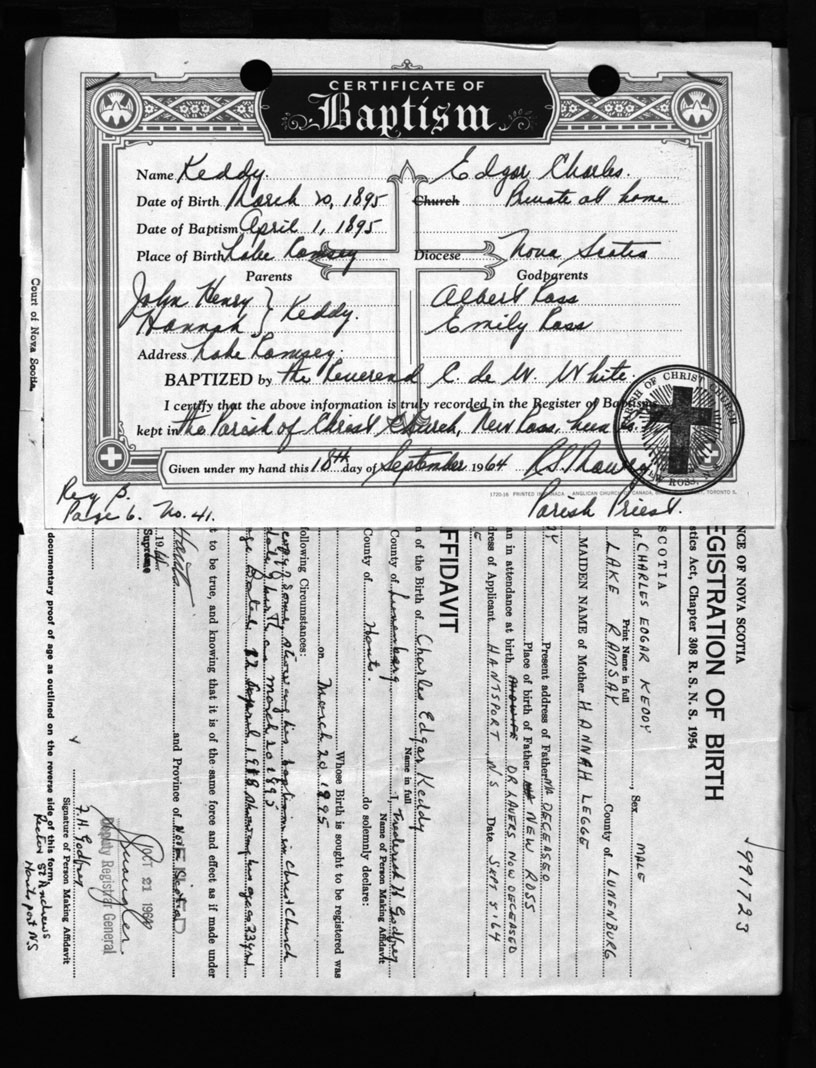 CERTIFICATE OF
Baptism
Name Keddy. Edgar Charles.
Date of Birth March 20, 1895 Church Private at home
Date of Baptism April 1, 1895
Place of Birth Lake Ramsey Diocese Nova Scotia
Parents Godparents
John Henry } Keddy. Albert Ross
Hannah Emily Ross
Address Lake Ramsey.
BAPTIZED by the Reverend C. de W. White.
I certify that the above information is truly recorded in the Register of Baptisms
kept in the Parish of Christ Church, New Ross,
Given under my hand this 18th day of September 1964
Parish Priest.
PARISH OF CHRIST CHURCH
NEW ROSS, N.S.
1720-16 PRINTED IN CANADA ANGLICAN CHURCH OF CANADA, TORONTO 5.
Reg B.
Page 6. No. 41.
Court of Nova Scotia
991723
NCE OF NOVA SCOTIA
EGISTRATION OF BIRTH
stics Act, Chapter 308 R. S. N. S. 1954
SCOTIA
of CHARLES EDGAR KEDDY, Sex MALE
Print Name in full
LAKE RAMSAY County of LUNENBURG
MAIDEN NAME of Mother HANNAH LEGGE
Present address of Father DECEASED
Place of birth of Father NEW ROSS
an in attendance at birth DR LAVERS NOW DECEASED
dress of Applicant HANTSPORT, N.S Date SEPT 5·64
FFIDAVIT
n of the Birth of Charles Edgar Keddy
Name in full
County of Lunenburg I, Frederick H Godfrey
Name of Person Making Affidavit
County of Hants. do solemnly declare:
Whose Birth is sought to be registered was
on March 20 1895
ollowing Circumstances:
showing his baptism in Christ Church
date of birth as March 20 1895
Dated 22 April 1918 showing his age as 23 yrs
t to be true, and knowing that it is of the same force and effect as if made under
Hants and Province of Nova Scotia
19 64
Supreme
OCT 21 1964
Deputy Registrar General
F.H. Godfrey
Signature of Person Making Affidavit
Rector St Andrew's
Hantsport N.S
documentary proof of age as outlined on the reverse side of this form